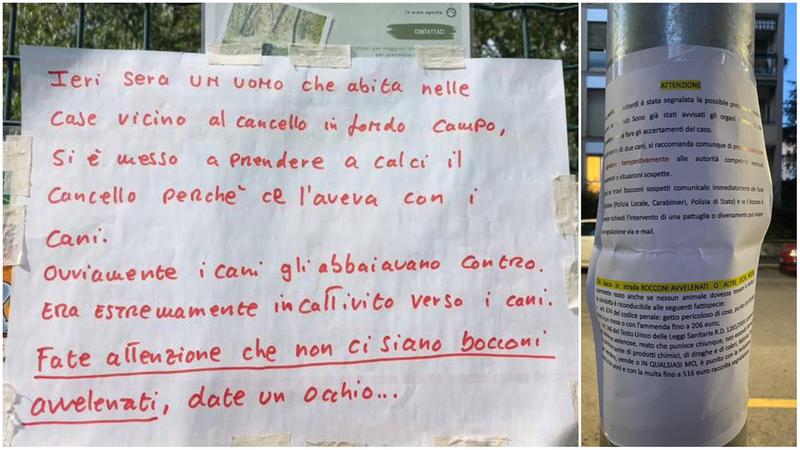 in area aperta
CONTATTACI
Ieri sera un uomo che abita nelle
case vicino al cancello in fondo campo,
si è messo a prendere a calci il
cancello perchè ce l'aveva con i
cani.
Ovviamente i cani gli abbaiavano contro.
Era estremamente incattivito verso i cani.
Fate attenzione che non ci siano bocconi
avvelenati, date un occhio...
ATTENZIONE
è stata segnalata la possibile
Sono già stati avvisati gli organi
fare gli accertamenti del caso.
di due cani, si raccomanda comunque di
tempestivamente alle autorità eventuali
o situazioni sospette.
trovi bocconi sospetti comunicalo immediatamente alle
(Polizia Locale, Carabinieri, Polizia di Stato) e se il boccone è
richiedi l'intervento di una pattuglia o diversamente puoi
segnalazione via e-mail.
lascia in strada BOCCONI AVVELENATI O ALTRE
commette reato anche se nessun animale dovesse
la condotta è riconducibile alle seguenti fattispecie:
art. 674 del codice penale: getto pericoloso di cose,
a un mese o con l'ammenda fino a 206 euro;
146 del Testo Unico delle Leggi Sanitarie R.D. 1265/
velenose, reato che punisce chiunque, non
di prodotti chimici, di droghe e di colori,
vende o IN QUALSIASI MO, è punito con la
anni e con la multa fino a 516 euro